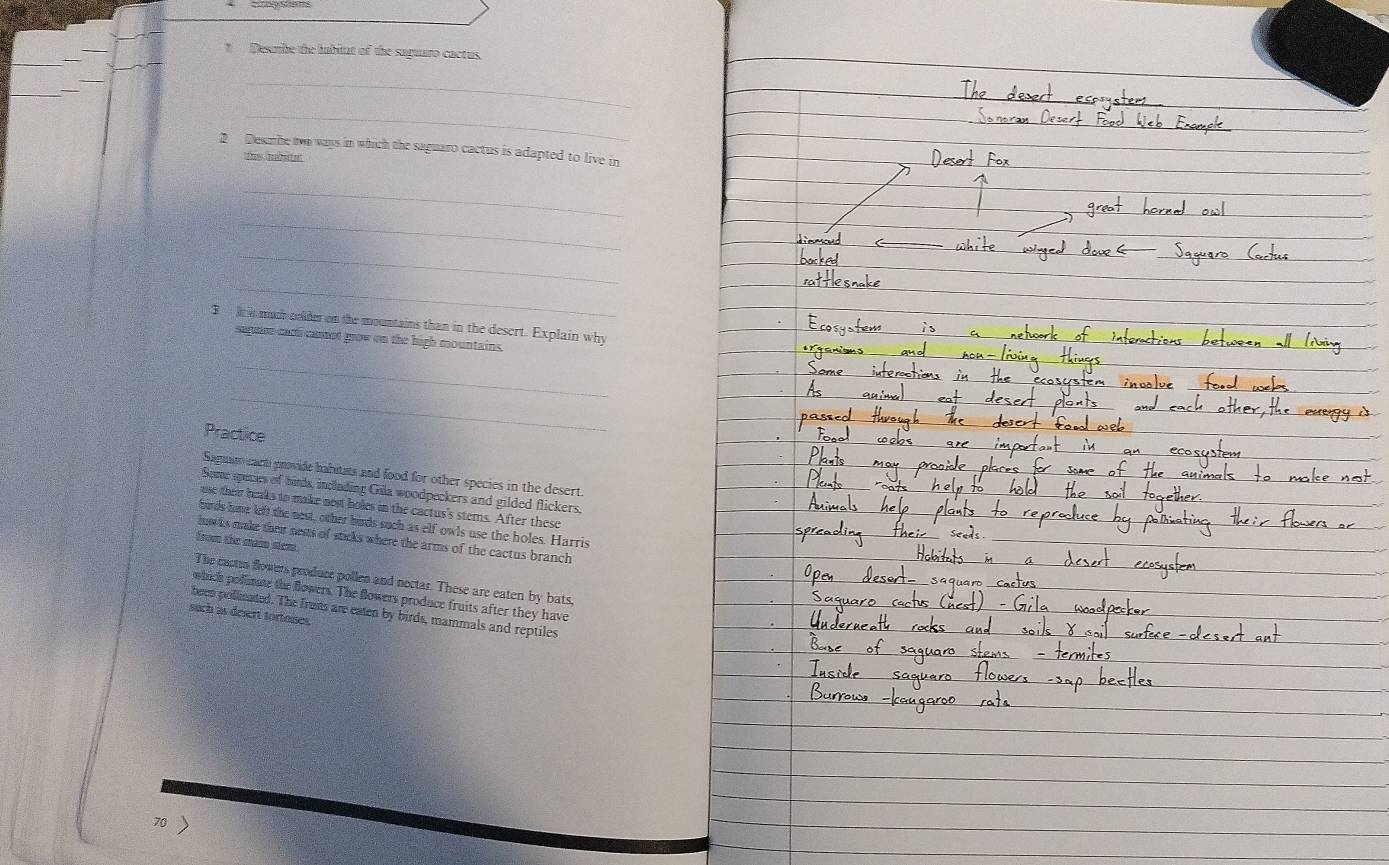 4 Ecosystems
1 Describe the habitat of the saguaro cactus.
2 Describe two ways in which the saguaro cactus is adapted to live in
this habitat.
3 It is much colder on the mountains than in the desert. Explain why
saguaro cacti cannot grow on the high mountains.
Practice
Saguaro cacti provide habitats and food for other species in the desert.
Some species of birds, including Gila woodpeckers and gilded flickers,
use their beaks to make nest holes in the cactus's stems. After these
birds have left the nest, other birds such as elf owls use the holes. Harris
hawks make their nests of sticks where the arms of the cactus branch
from the main stem.
The cactus flowers produce pollen and nectar. These are eaten by bats,
which pollinate the flowers. The flowers produce fruits after they have
been pollinated. The fruits are eaten by birds, mammals and reptiles
such as desert tortoises.
70
The desert ecosystem
Sonoran Desert Food Web Example
Desert Fox
great horned owl
diamond white winged dove Saguaro Cactus
backed
rattlesnake
Ecosystem is a network of interactions between all living
organisms and non-living things
Some interactions in the ecosystem involve food webs
As animal eat desert plants and each other, the energy is
passed through the desert food web
Food webs are important in an ecosystem
Plants may provide places for some of the animals to make nest
Plants roots help to hold the soil together.
Animals help plants to reproduce by pollinating their flowers or
spreading their seeds.
Habitats in a desert ecosystem
Open desert - saguaro cactus
Saguaro cactus (nest) - Gila woodpecker
Underneath rocks and soils & soil surface - desert ant
Base of saguaro stems - termites
Inside saguaro flowers - sap beetles
Burrows - kangaroo rats